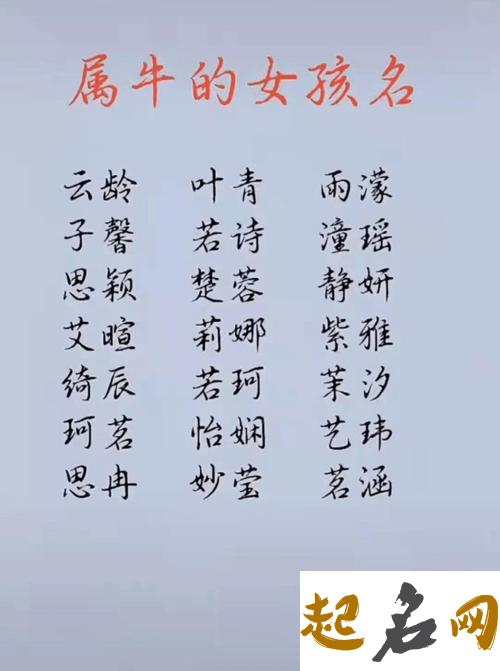 属牛的女孩名
云龄 叶青 雨濛
子馨 若诗 潼瑶
思颖 楚蓉 静妍
艾暄 莉娜 紫雅
绮辰 若珂 茉汐
珂茗 怡娴 艺玮
思冉 妙莹 茗涵
起名网